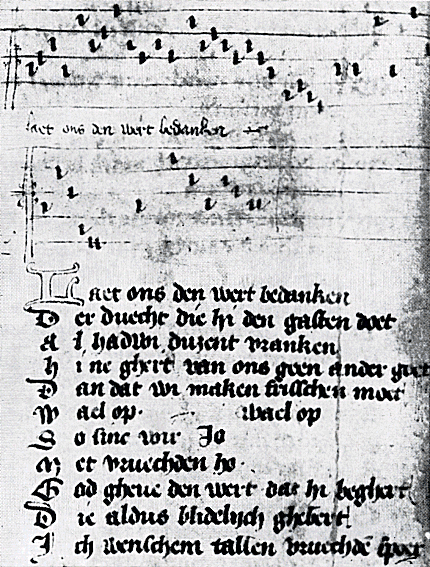 laet ons den wert bedanken
Laet ons den wert bedanken
Der duecht die hi den gasten doet
Al hadwi duzent vranken
hi ne ghert van ons geen ander goet
Dan dat wi maken frisschen moet
Wael op wael op
So sinc wir Jo
Met vruechden ho
God gheve den wert dat hi beghert
Die aldus blidelijch ghebert
Ich wenschem tallen vruechdē spoet